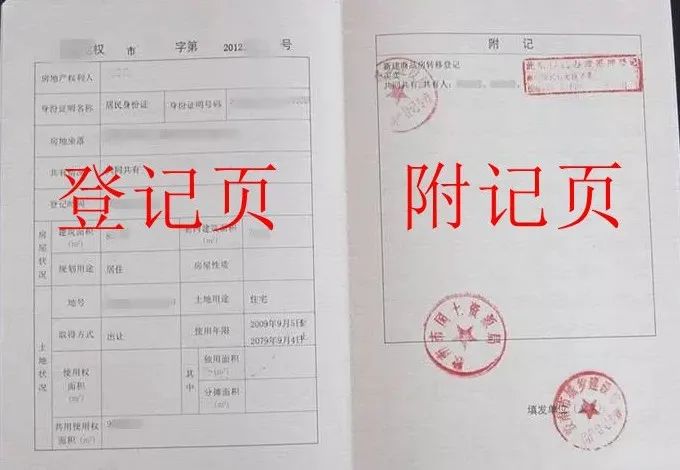 权 市 字第 2012 号
房地产权利人
身份证明名称 居民身份证 身份证明号码
房地坐落
共有情况 共同共有
登记时间
登记页
房屋状况
建筑面积(m²) 套内建筑面积(m²)
规划用途 居住 房屋性质
土地状况
地号 土地用途 住宅
取得方式 出让 使用年限 2009年9月5日至
2079年9月4日
使用权面积(m²) 其中 独用面积(m²)
分摊面积(m²)
共用使用权面积(m²)
附 记
新建商品房转移登记
买卖
共同共有 共有人：
附记页
市国土资源局
填发单位